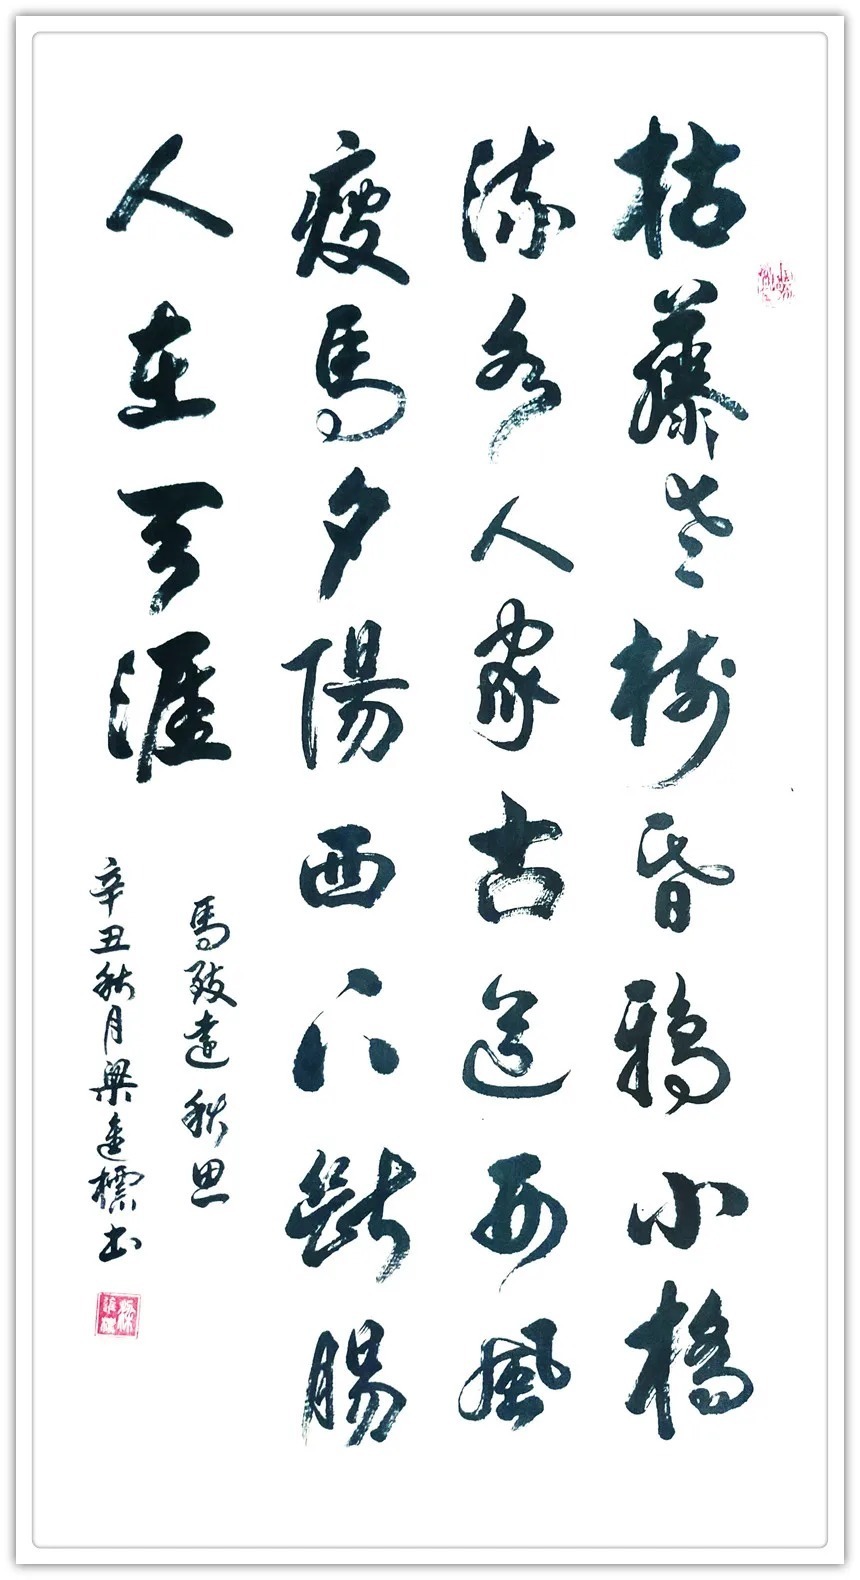 枯藤老樹昏鴉小橋
流水人家古道西風
瘦馬夕陽西下斷腸
人在天涯
馬致遠秋思
辛丑秋月梁進標書